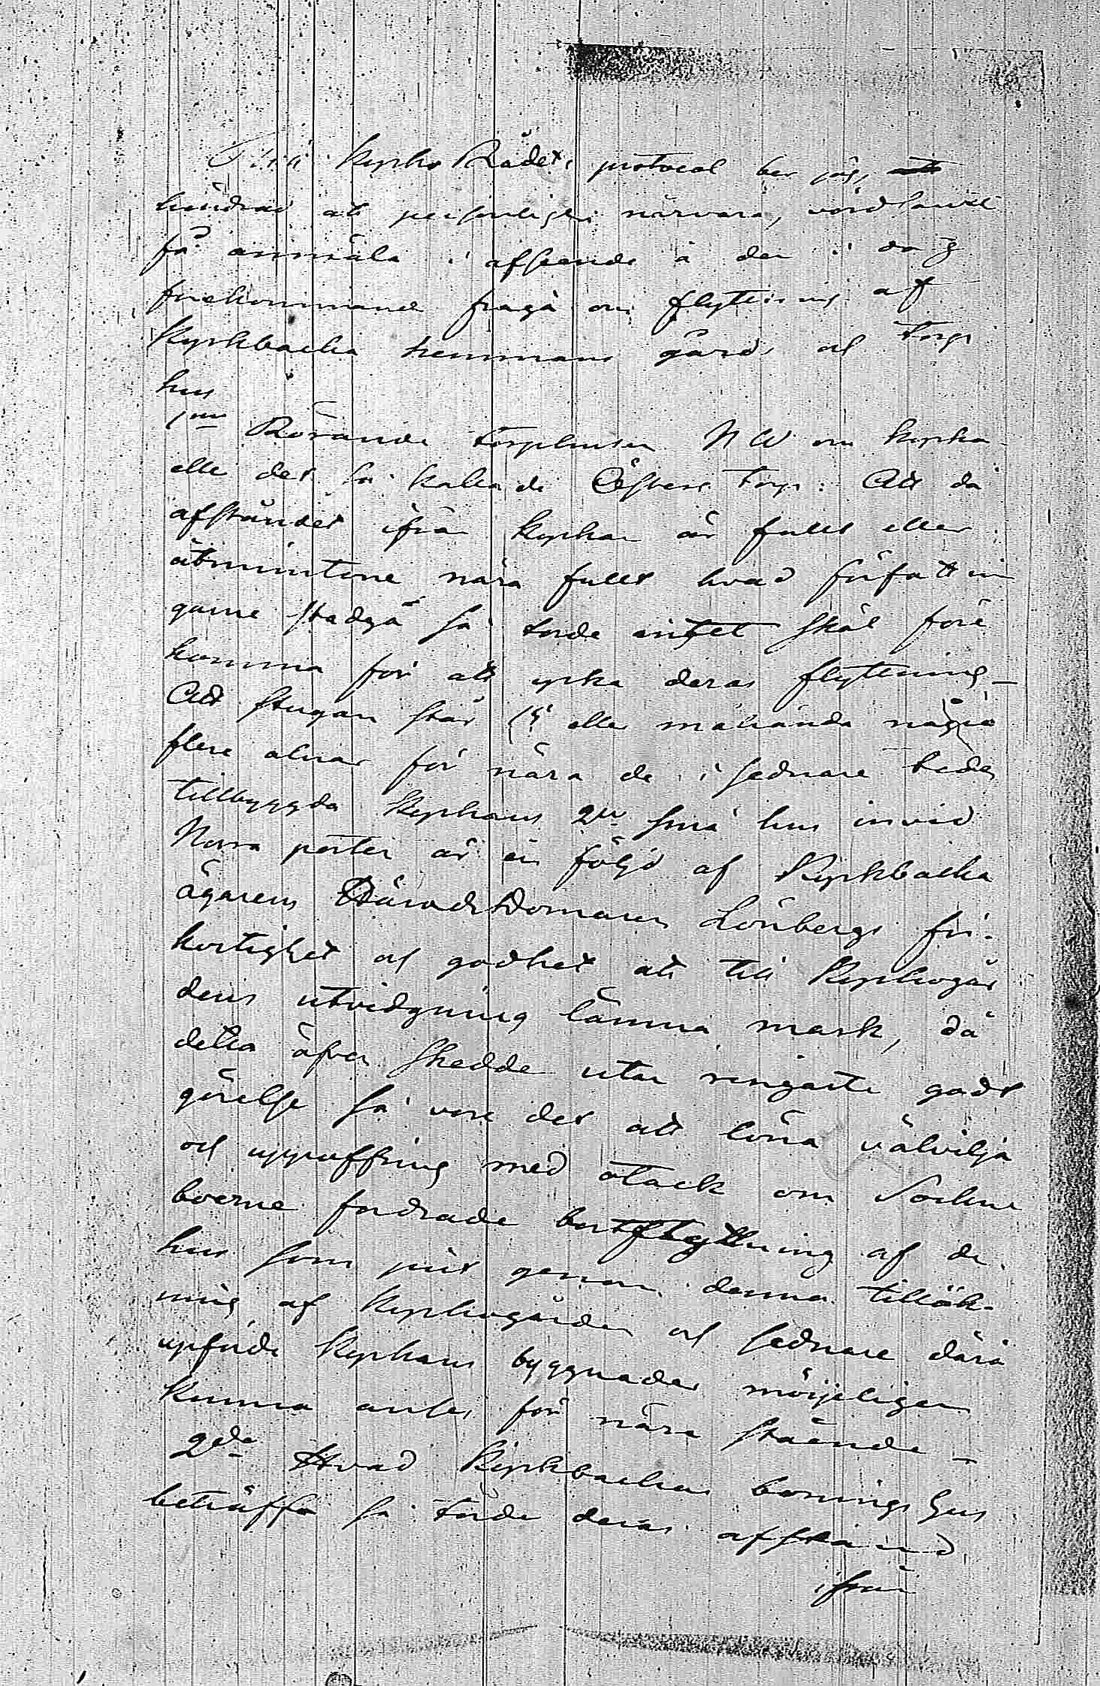 Till Kyrko Rådets protocol ber jag,
hindrad att personligen närvara, vördsamt
få anmäla i afseende å den i dag
förekommande fråga om flyttning af
Kyrkbacka hemmans gård och torp
hus
1mo Rörande torphusen NW om kyrkan
elle det så kallade Östbergs torp. Att då
afståndet ifrån kyrkan är fullt eller
åtminstone nära fullt hvad författnin
garne stadga så torde intet skäl före
komma för att yrka deras flyttning –
Att stugan står elle måhända några
flere alnar för nära de i sednare tider
tillbyggda kyrkans 2ne små hus invid
Norra porten är en följd af Kyrkbacka
ägarens HäradsDomaren Lönbergs fri-
kostighet och godhet att till Kyrkogår
dens utvidgning lämna mark, då
detta äfven skedde utan ringaste godt
görelse så vore det att löna välvilja
och uppoffring med otack om Sockne
boerne fordrade bortflyttning af de
hus som just genom denna tillök-
ning af Kyrkogården och sednare därå
upförde Kyrkans byggnader möjeligen
kunna anses för nära stående –
2do Hvad Kyrkbackas bonings hus
beträffa så torde deras afstånd
ifrån